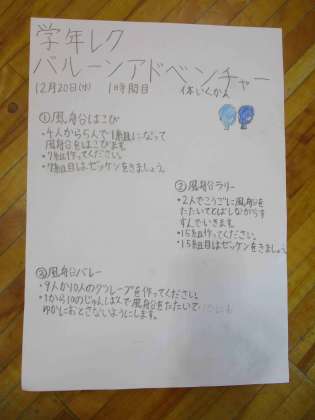 学年レク
バルーンアドベンチャー
12月20日(水) 1時間目 体いくかん
①風船はこび
・4人から5人で1組になって
風船をはこびます。
・7組作ってください。
・7組目はゼッケンをきましょう。
②風船ラリー
・2人でこうごに風船を
たたいてとばしながらす
すんでいきます。
・15組作ってください。
・15組目はゼッケンをきましょう
③風船バレー
・9人か10人のグループを作ってください。
・1から10のじゅんばんで風船をたたいて
ゆかにおとさないようにします。